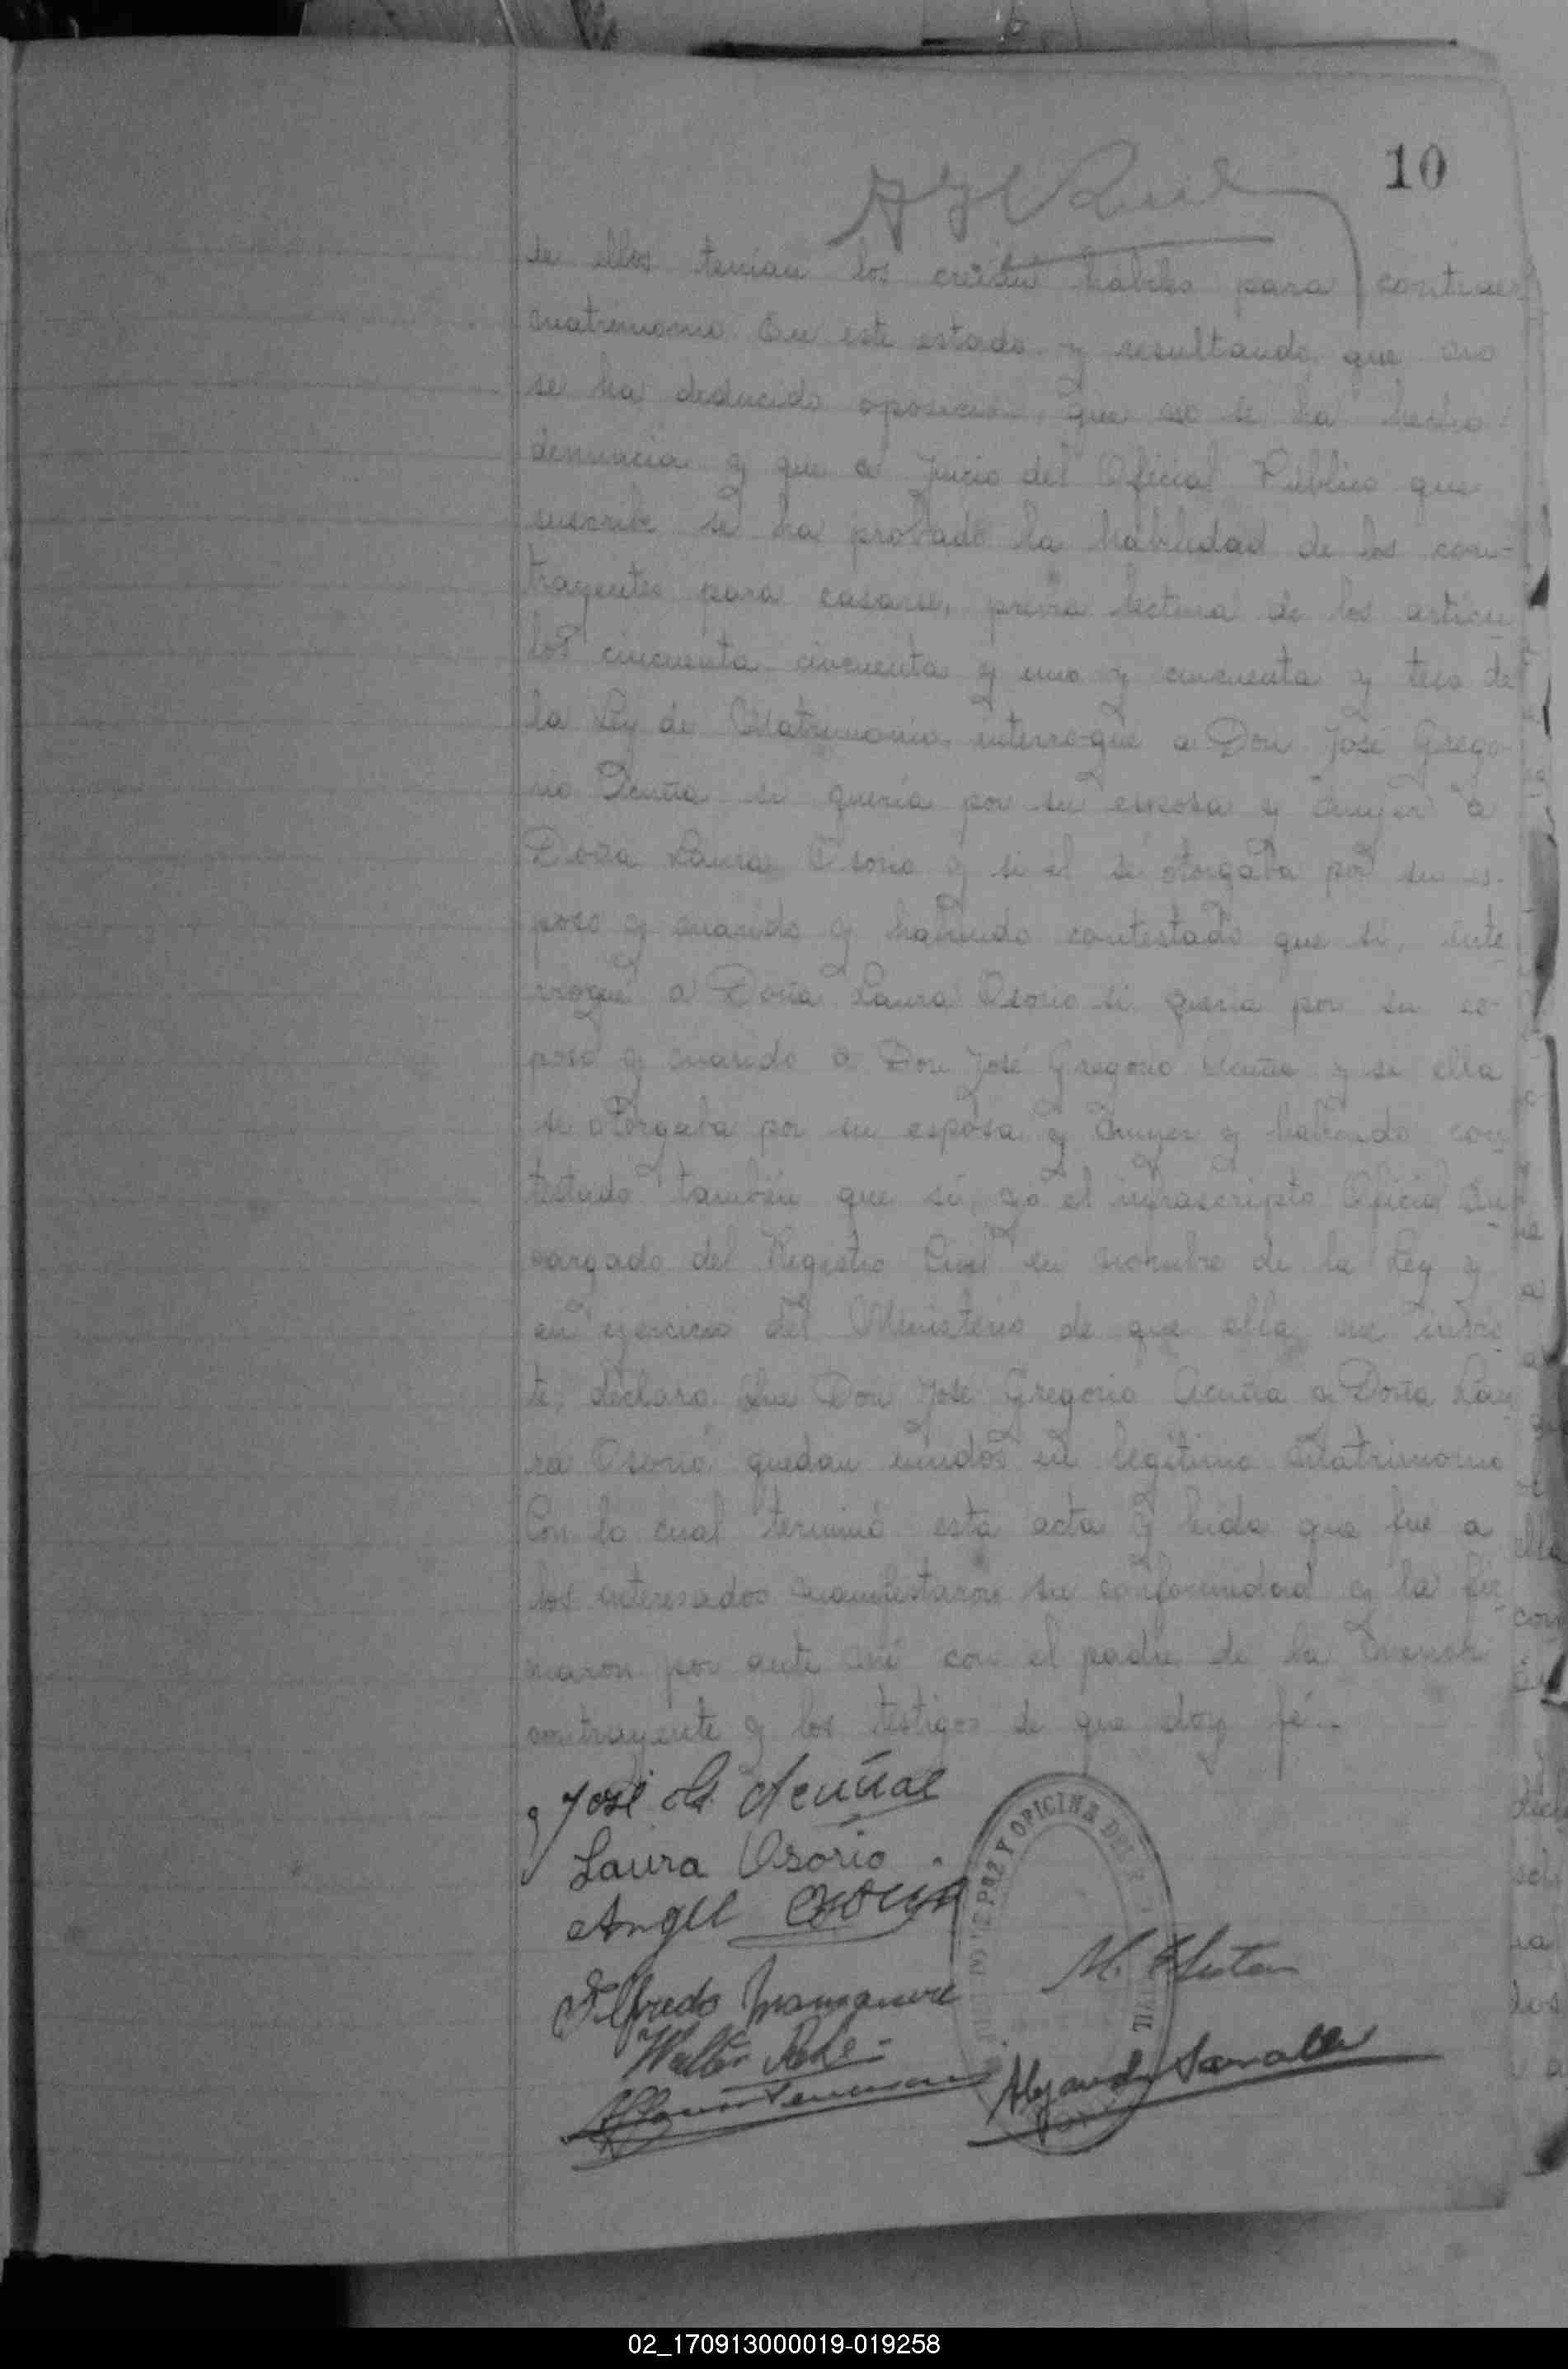 10
de ellos tenian los creían hábiles para contraer
matrimonio. En este estado y resultando que no
se ha deducido oposición, que no se ha hecho
denuncia y que a juicio del Oficial Público que
suscribe se ha probado la habilidad de los con-
trayentes para casarse, previa lectura de los artícu
los cincuenta cincuenta y uno y cincuenta y tres de
la Ley de Matrimonio interrogué a Don José Grego
rio Acuña si quería por su esposa y mujer a
Doña Laura Osorio y si él se otorgaba por su es-
poso y marido y habiendo contestado que si, inte
rrogué a Doña Laura Osorio si quería por su es-
poso y marido a Don José Gregorio Acuña y si ella
se otorgaba por su esposa y mujer y habiendo con
testado también que si, yo el infrascripto Oficial En
cargado del Registro Civil en nombre de la Ley y
en ejercicio del Ministerio de que ella me invis
te, declaro: Que Don José Gregorio Acuña y Doña Lau
ra Osorio quedan unidos en legítimo Matrimonio
Con lo cual terminó esta acta y leida que fue a
los interesados manifestaron su conformidad y la fir
maron por ante mi con el padre de la menor
contrayente y los testigos de que doy fé.-
José G. Acuña
Laura Osorio
Angel Osorio
DE PAZ Y OFICINA DEL
M.
Walter
Alejandro
02_170913000019-019258